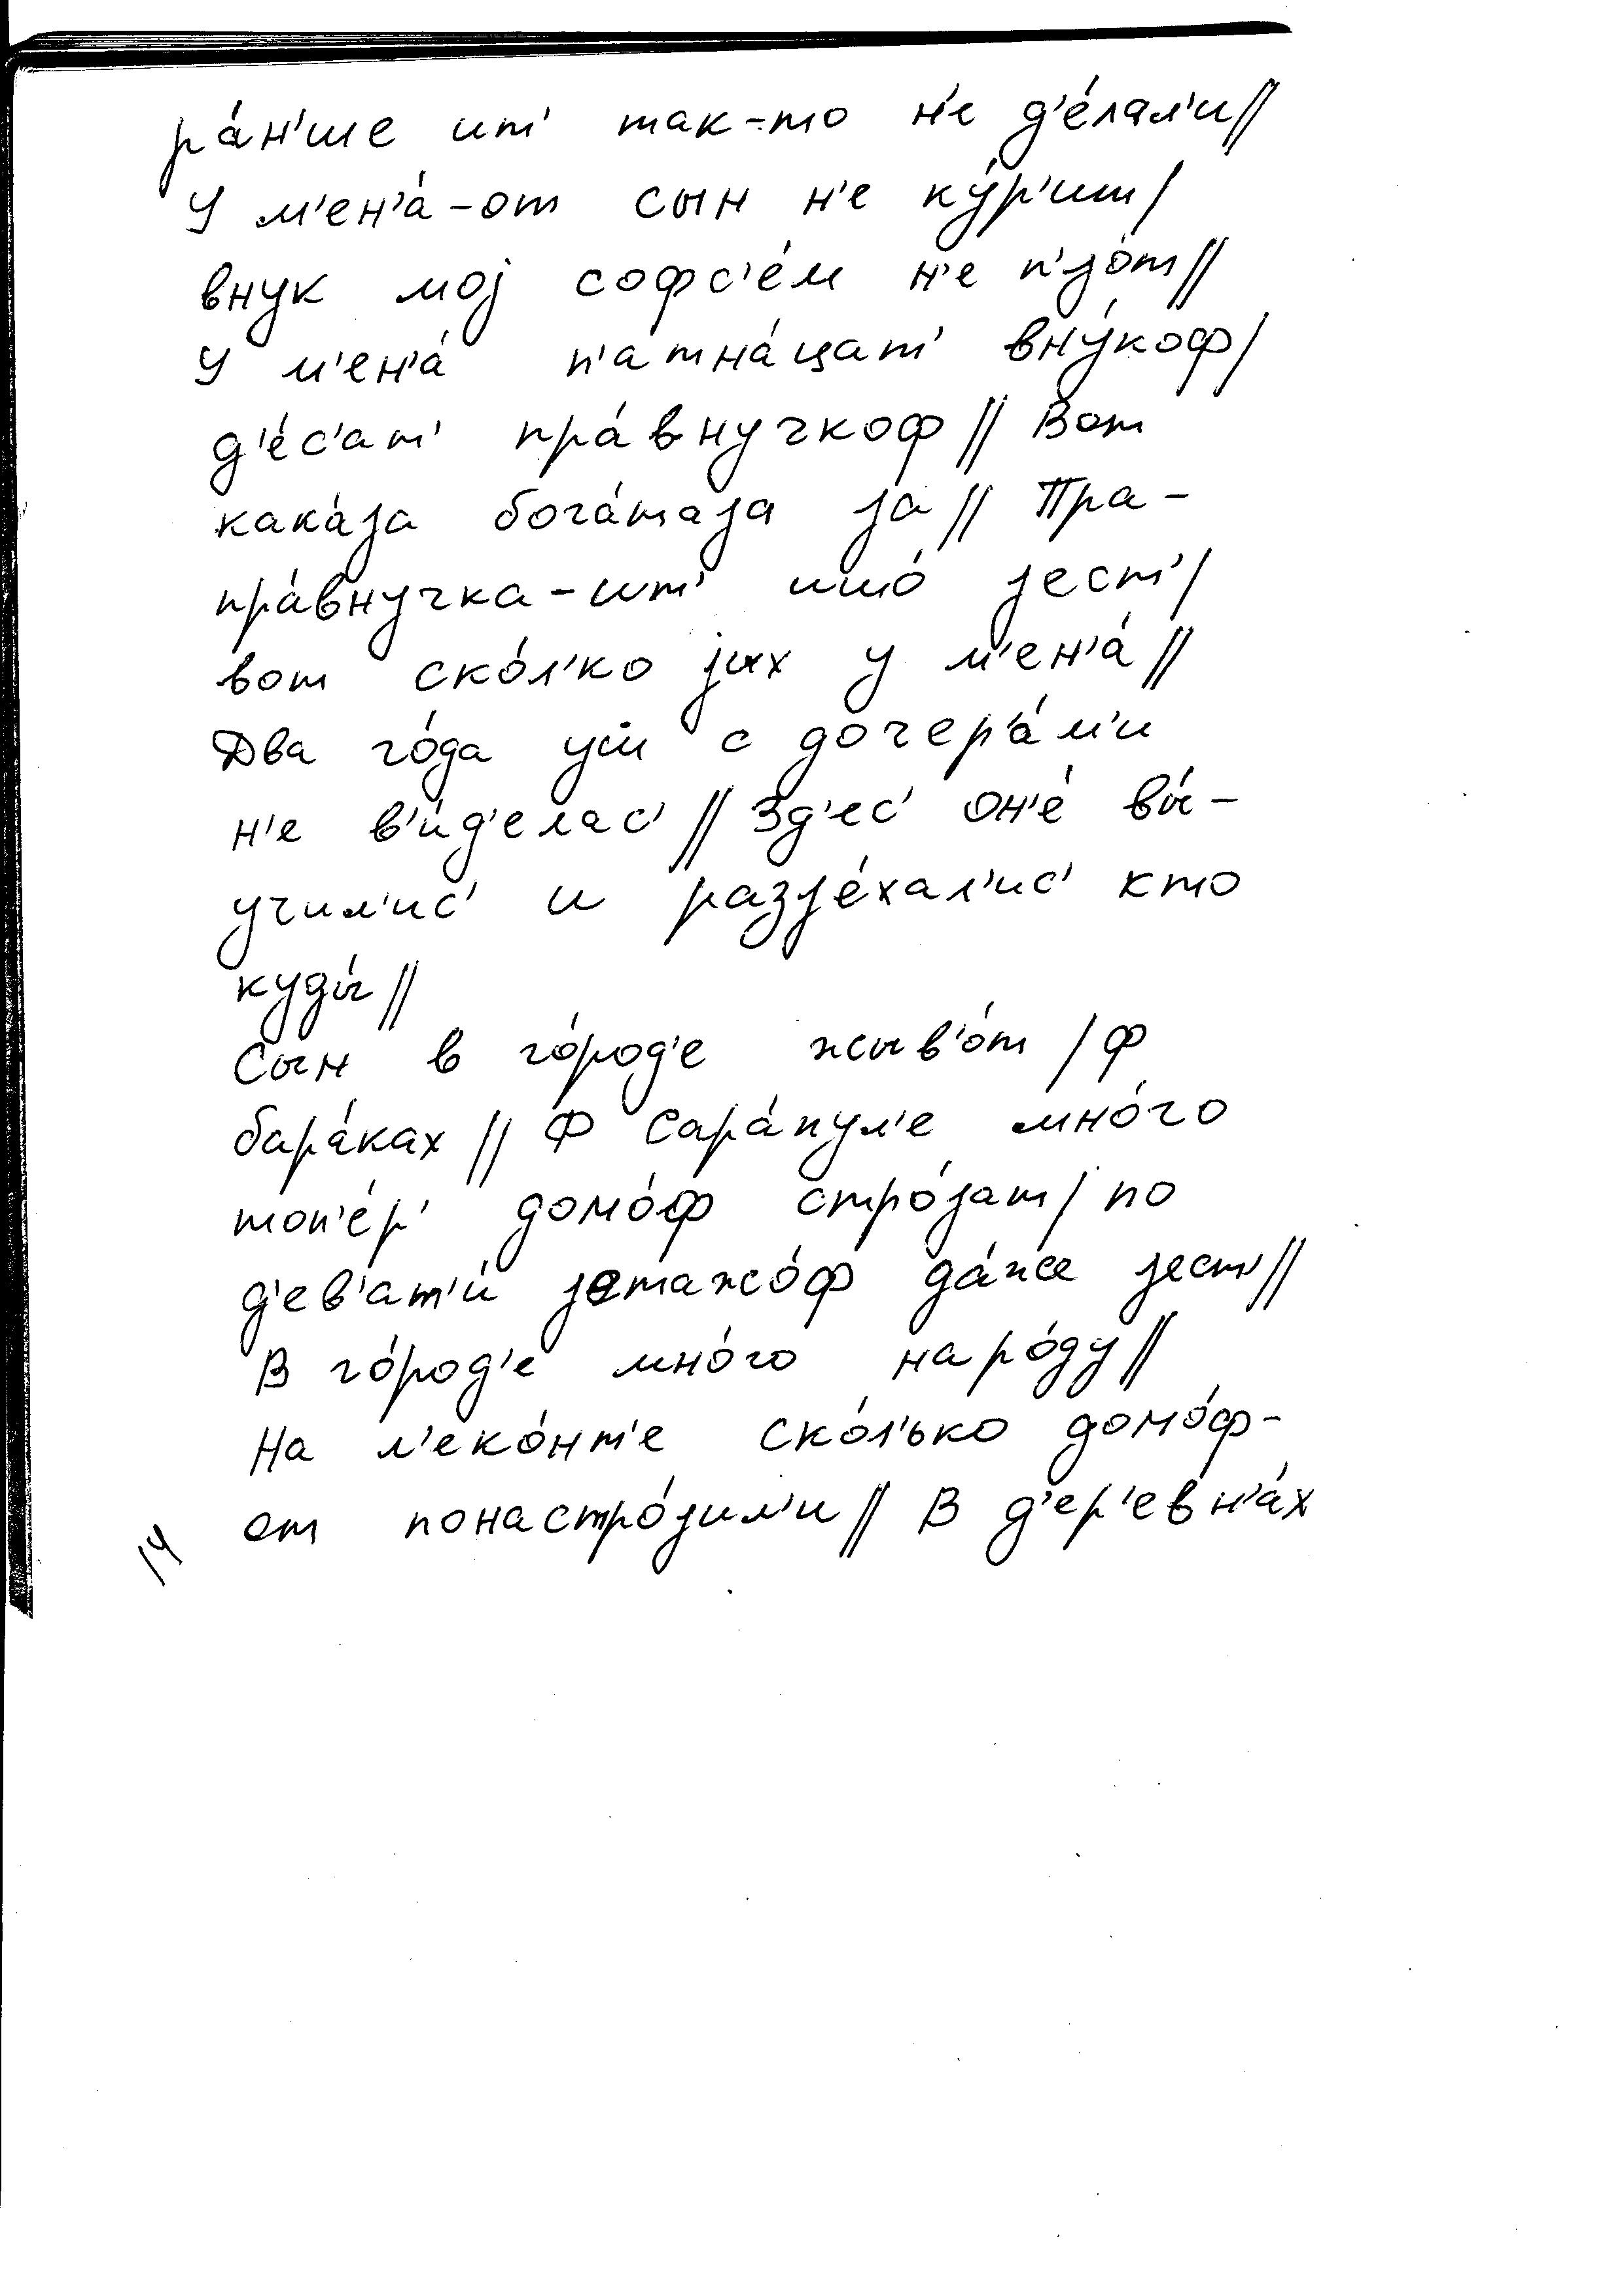 ра́н'ше ит' так-то н'е д'е́лал'и//
У м'ен'а́-от сын н'е ку́р'ит/
внук мој софс'е́м н'е п'јо́т//
У м'ен'а́ п'атна́цат' вну́коф/
д'е́с'ат' пра́внучкоф// Вот
кака́ја бога́таја ја// Пра-
пра́внучка-ит' ишо́ јест'/
вот ско́л'ко јих у м'ен'а́//
Два го́да уш с дочер'а́м'и
н'е в'и́д'елас'// Зд'ес' он'е́ вы́-
учил'ис' и разје́хал'ис' кто
куды́//
Сын в го́род'е жыв'о́т/ ф
бара́ках// Ф Сара́пул'е мно́го
топ'е́р' домо́ф стро́јат/ по
д'ев'ат'и́ јетажо́ф да́же јест'//
В го́род'е мно́го наро́ду//
На л'еко́нт'е ско́л'ько домо́ф-
от понастро́јил'и// В д'ер'евн'а́х
14